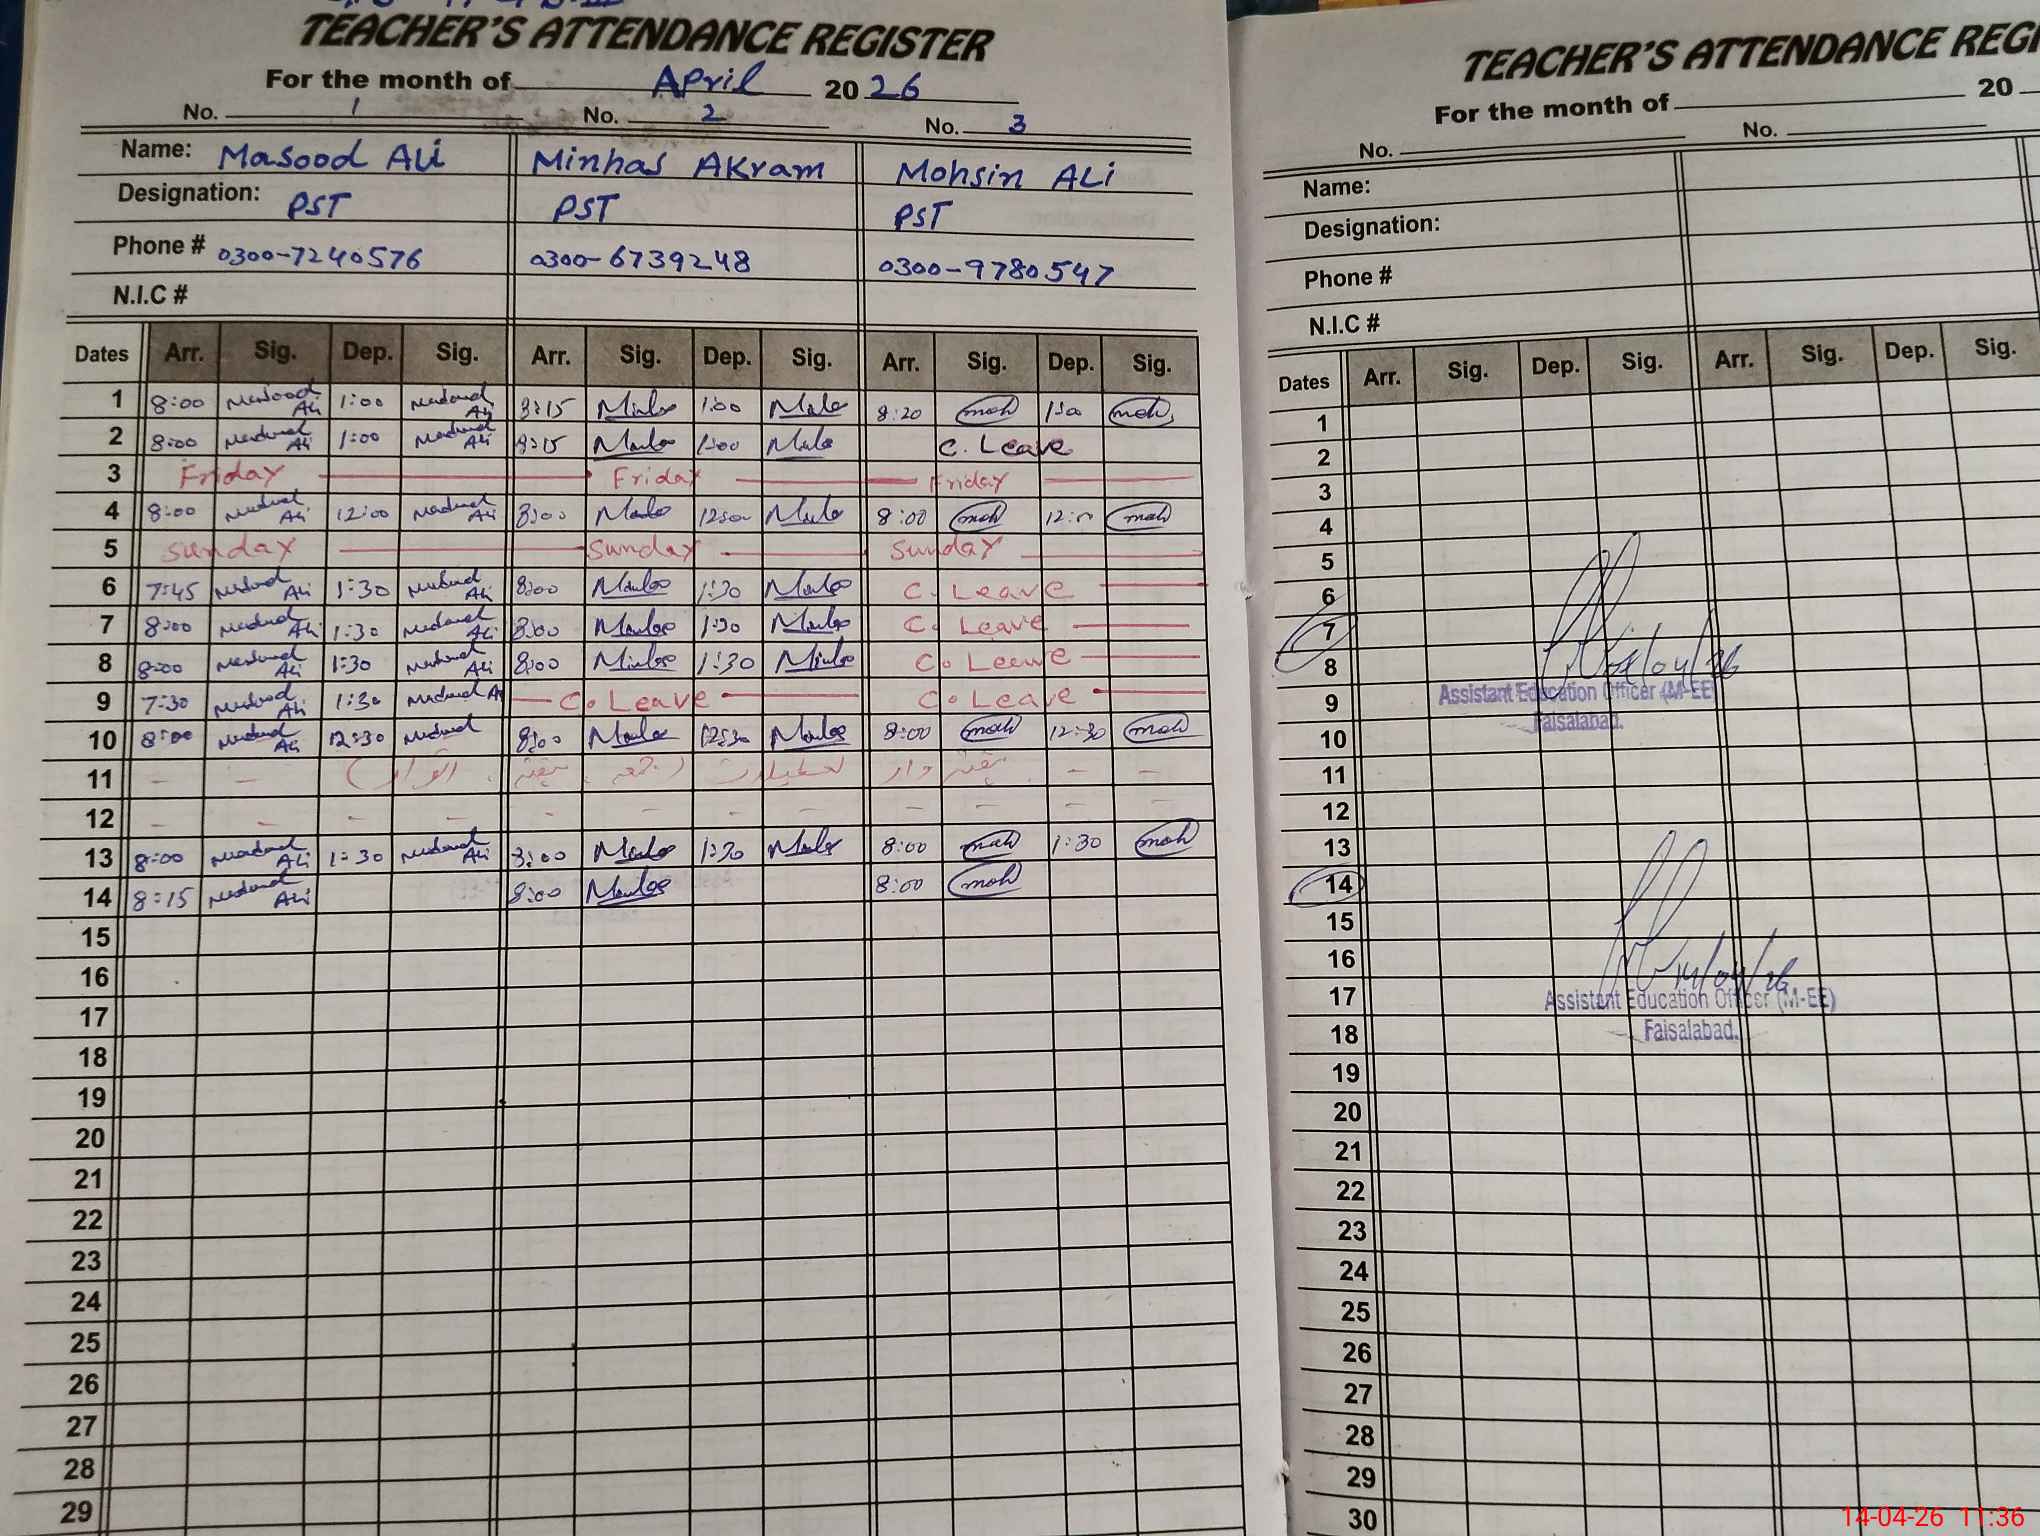 TEACHER'S ATTENDANCE REGISTER
For the month of April 2026
No. 1 No. 2 No. 3
Name: Masood Ali Minhas Akram Mohsin ALi
Designation: PST PST PST
Phone # 0300-7240576 0300-6739248 0300-9780547
N.I.C #
Dates Arr. Sig. Dep. Sig. Arr. Sig. Dep. Sig. Arr. Sig. Dep. Sig.
1 8:00 Masood Ali 1:00 Masood Ali 8:15 1:00 8:20 moh 1:00 moh
2 8:00 Masood Ali 1:00 Masood Ali 8:15 1:00 C. Leave
3 Friday Friday Friday
4 8:00 Masood Ali 12:00 Masood Ali 8:00 12:00 8:00 moh 12:00 moh
5 Sunday Sunday Sunday
6 7:45 Masood Ali 1:30 Masood Ali 8:00 1:30 C. Leave
7 8:00 Masood Ali 1:30 Masood Ali 8:00 1:30 C. Leave
8 8:00 Masood Ali 1:30 Masood Ali 8:00 1:30 C. Leave
9 7:30 Masood Ali 1:30 Masood Ali C. Leave C. Leave
10 8:00 Masood Ali 12:30 Masood 8:00 12:30 8:00 moh 12:30 moh
11 - - ہفتہ وار تعطیلات (جمعہ، ہفتہ، اتوار) - -
12 - - - - - - - - - - -
13 8:00 Masood Ali 1:30 Masood Ali 8:00 1:30 8:00 moh 1:30 moh
14 8:15 Masood Ali 8:00 8:00 moh
15
16
17
18
19
20
21
22
23
24
25
26
27
28
29
TEACHER'S ATTENDANCE REGI
For the month of 20
No. No.
Name:
Designation:
Phone #
N.I.C #
Dates Arr. Sig. Dep. Sig. Arr. Sig. Dep. Sig.
1
2
3
4
5
6
7
8
9
Assistant Education Officer (M-EE)
Faisalabad.
10
11
12
13
14
15
16
17
Assistant Education Officer (M-EE)
Faisalabad.
18
19
20
21
22
23
24
25
26
27
28
29
30
14-04-26 11:36